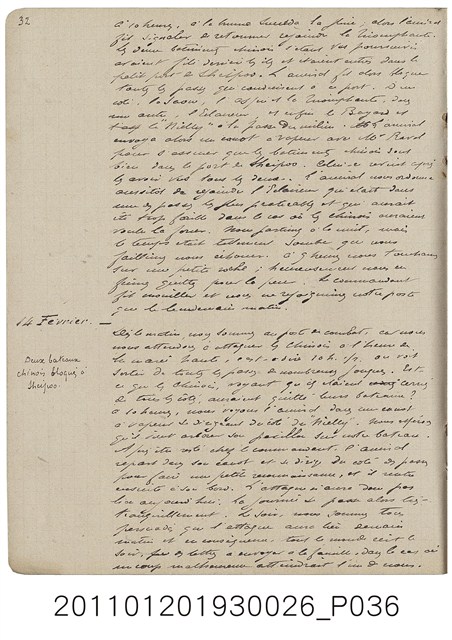 32
à 10 heures, à la brume succède la pluie, alors l'amiral
fit signaler de retourner rejoindre la Triomphante.
Les deux bâtiments chinois s'étant vus poursuivis
avaient filé derrière les îles et étaient entrés dans le
petit port de Sheïpoo. L'amiral fit alors bloquer
toutes les passes qui conduisaient à ce port. D'un
côté, la Saône, l'Aspic et la Triomphante, dans
une autre, l'Eclaireur et enfin le Bayard et
le "Nielly" à la passe du milieu. L'amiral
envoya alors un canot à vapeur avec Mr Ravel
pour s'assurer que les bâtiments chinois sont
bien dans le port de Sheïpoo. Celui-ci revint après
les avoir vus tous les deux. L'amiral nous ordonne
aussitôt de rejoindre l'Eclaireur qui était dans
une des passes les plus praticables et qui aurait
été trop faible dans le cas où les chinois auraient
voulu la forcer. Nous partîmes à la nuit, mais
le temps était tellement sombre que nous
faillîmes nous échouer. à 9 heures nous touchons
sur une petite roche ; heureusement nous en
fûmes quittes pour la peur. Le commandant
fit mouiller et nous ne rejoignîmes notre poste
que le lendemain matin.
14 Février. —
Deux bateaux
chinois bloqués à
Sheïpoo.
Dès le matin, nous sommes au poste de combat, car nous
nous attendons à attaquer les Chinois à l'heure de
la marée haute, c'est-à-dire 10 h. 1/2. on voit
sortir de toutes les passes de nombreuses jonques. Est-
ce que les Chinois, voyant qu'ils étaient cernés
de tous les côtés, auraient quitté leurs bateaux ?
à 10 heures, nous voyons l'amiral dans un canot
à vapeur se dirigeant du côté du "Nielly". Nous espérons
qu'il vient arborer son pavillon sur notre bateau.
Après être resté chez le commandant, l'amiral
repart dans son canot et se dirige du côté des passes
pour faire une petite reconnaissance, et il rentre
ensuite à son bord. L'attaque n'aura donc pas
lieu aujourd'hui. La journée se passe alors très-
tranquillement. Le soir, nous sommes tous
persuadés que l'attaque aura lieu demain
matin et en conséquence, tout le monde écrit le
soir, des lettres à envoyer à la famille, dans le cas où
un coup malheureux atteindrait l'un de nous.
201101201930026_P036